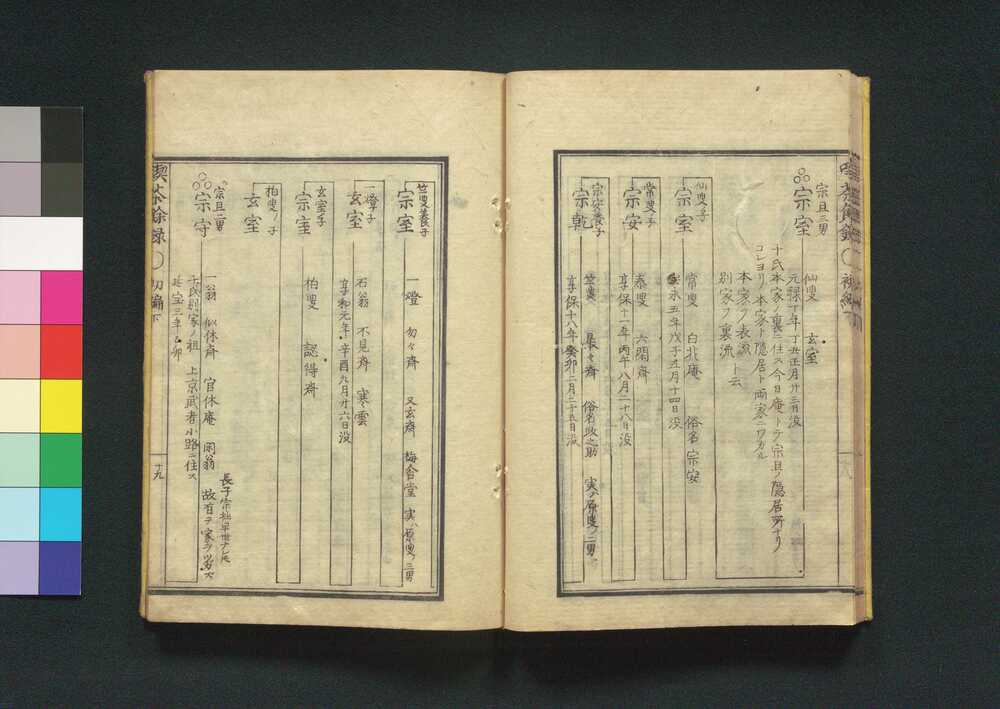 宗旦三男
宗室
仙叟 玄室
元禄十年 丁丑正月廿三日没
千氏本家ノ裏ニ住ス今日庵トテ宗旦ノ隠居所ナリ
コレヨリ 本家ト隠居ト両家ニワカル
本家ヲ表流
別家ヲ裏流ト云
仙叟ノ子
宗室
常叟 白北庵 俗名宗安
永五年戊子五月十四日没
常叟ノ子
宗安
泰叟 六閑斎
享保十一年 丙午八月二十八日没
宗安養子
宗乾
竺叟 俗名政之助 実ハ原叟ノ二男
享保十八年癸卯二月二十五日没
竺叟養子
宗室
一燈 又玄斎 実ハ原叟ノ三男
一燈ノ子
玄室
石翁 不見斎 寒雲
享和元年辛酉九月廿六日没
玄室ノ子
宗室
柏叟 認得斎
柏叟ノ子
玄室
宗旦二男
宗守
長子宗拙早世ナレ
一翁 似休斎 官休庵 閑翁 故有テ家ヲツガズ
千氏別家ノ祖 上京武者小路ニ住ス
延宝三年乙卯
喫茶餘録 初編下
十九